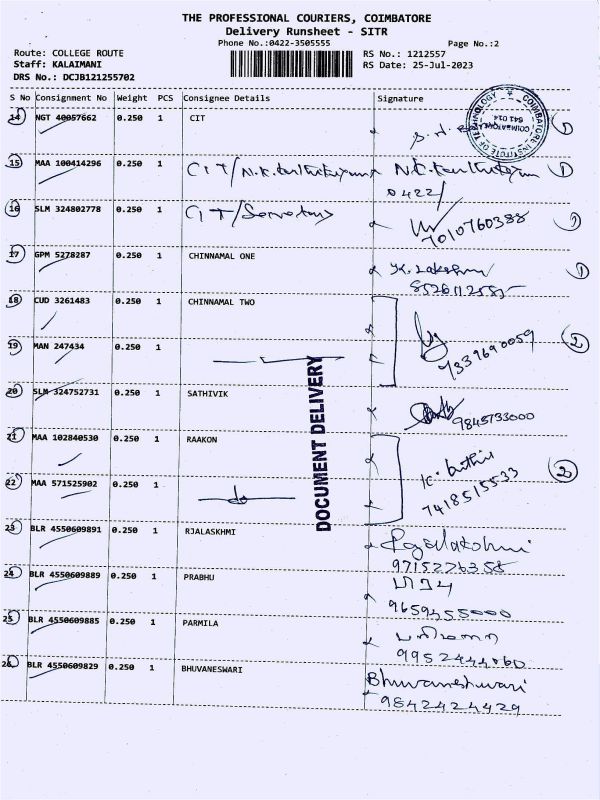 THE PROFESSIONAL COURIERS, COIMBATORE
Delivery Runsheet - SITR
Phone No.:0422-3505555
Page No.:2
Route: COLLEGE ROUTE
RS No.: 1212557
Staff: KALAIMANI
RS Date: 25-Jul-2023
DRS No.: DCJB121255702
S No Consignment No Weight PCS Consignee Details Signature
14 NGT 40057662 0.250 1 CIT
COIMBATORE INSTITUTE OF TECHNOLOGY
COIMBATORE
641 014
1
15 MAA 100414296 0.250 1 CIT/
1
0422/
16 SLM 324802778 0.250 1 CIT/
7010760388
1
17 GPM 5278287 0.250 1 CHINNAMAL ONE
K. Lakshmi
1
18 CUD 3261483 0.250 1 CHINNAMAL TWO
19 MAN 247434 0.250 1
7339690059
2
20 SLM 324752731 0.250 1 SATHIVIK
9845733000
DOCUMENT DELIVERY
21 MAA 102840530 0.250 1 RAAKON
22 MAA 571525902 0.250 1 do
7418515533
2
23 BLR 4550609891 0.250 1 RJALASKHMI
Rajalakshmi
9715276358
24 BLR 4550609889 0.250 1 PRABHU
பிரபு
9659455000
25 BLR 4550609885 0.250 1 PARMILA
9952444060
26 BLR 4550609829 0.250 1 BHUVANESWARI
Bhuvaneshwari
9842424429